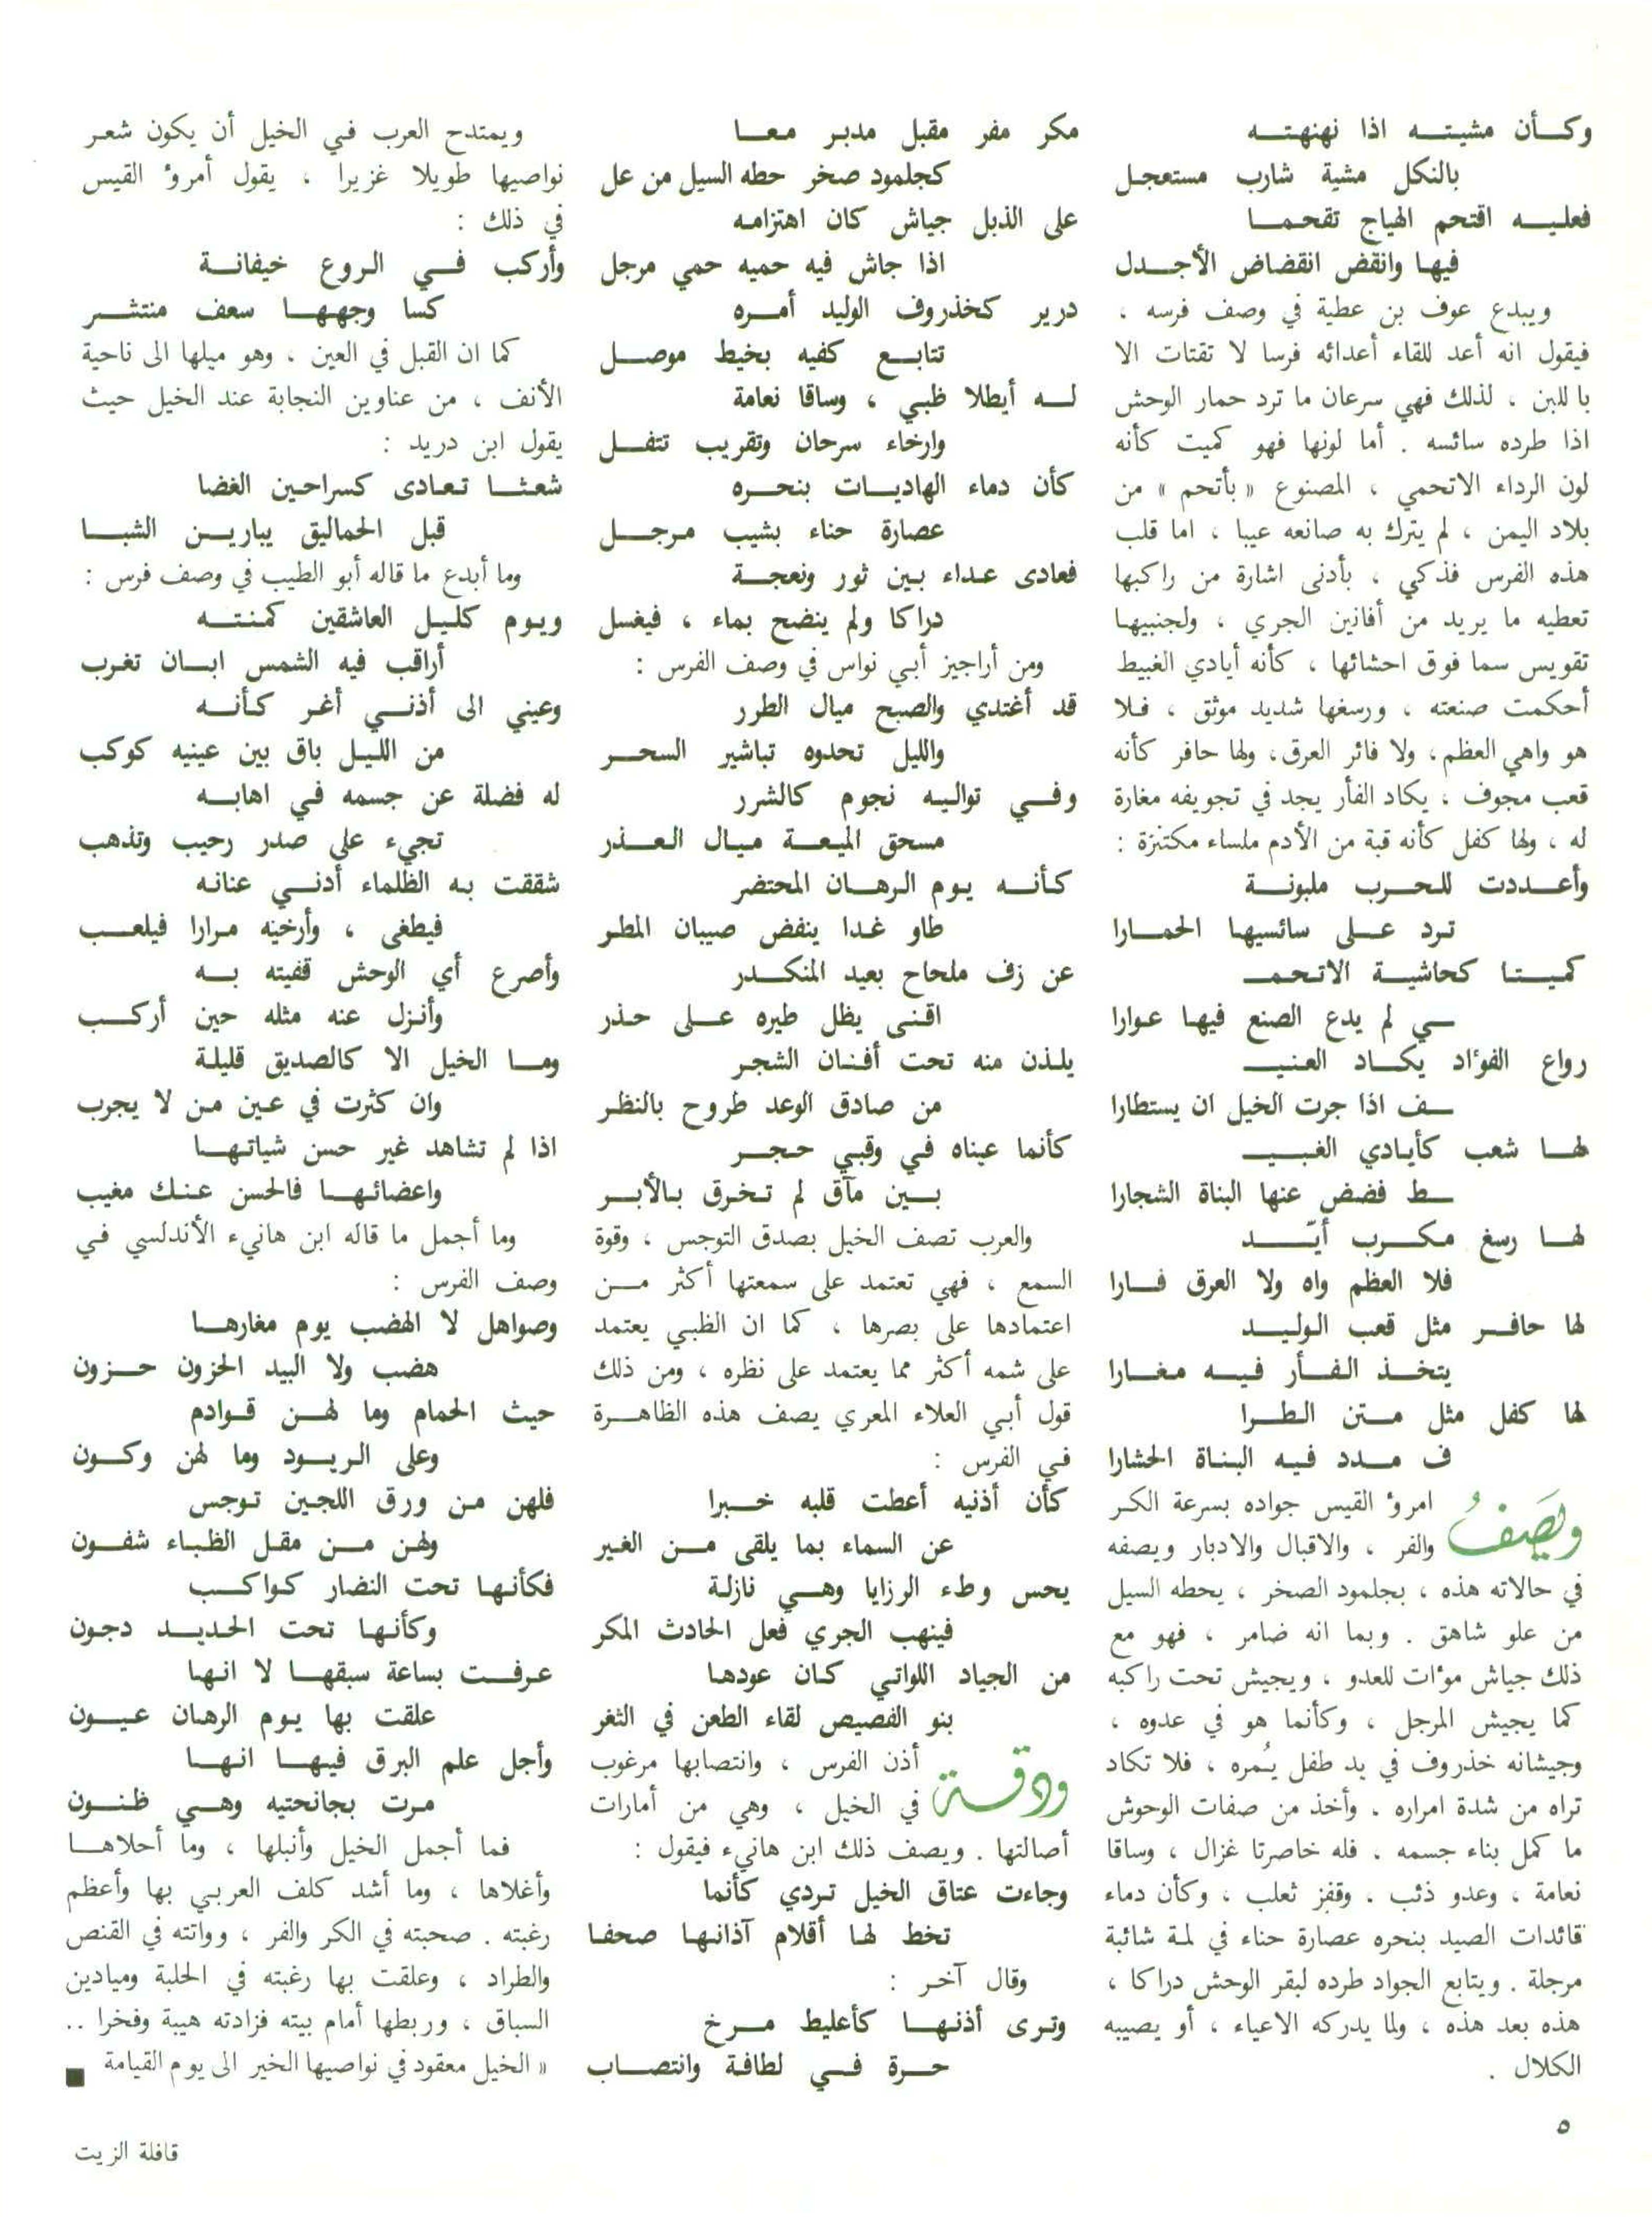 وكأن مشيته اذا نهنهته
بالنكل مشية شارب مستعجل
فعليه اقتحم الهياج تقحما
فيها وانقض انقضاض الأجدل
ويبدع عوف بن عطية في وصف فرسه ،
فيقول انه أعد للقاء أعدائه فرسا لا تقتات الا
باللبن ، لذلك فهي سرعان ما ترد حمار الوحش
اذا طرده سائسه . أما لونها فهو كميت كأنه
لون الرداء الاتحمي ، المصنوع « بأتحم » من
بلاد اليمن ، لم يترك به صانعه عيبا ، اما قلب
هذه الفرس فذكي ، بأدنى اشارة من راكبها
تعطيه ما يريد من أفانين الجري ، ولجنبيها
تقويس سما فوق احشائها ، كأنه أيادي الغبيط
أحكمت صنعته ، ورسغها شديد موثق ، فلا
هو واهي العظم، ولا فائر العرق، ولها حافر كأنه
قعب مجوف ، يكاد الفأر يجد في تجويفه مغارة
له ، ولها كفل كأنه قبة من الأدم ملساء مكتنزة :
وأعددت للحرب ملبونة
ترد على سائسيها الحمارا
كميتا كحاشية الاتحمـ
ـي لم يدع الصنع فيها عوارا
رواع الفؤاد يكاد العنيـ
ـف اذا جرت الخيل ان يستطارا
لها شعب كأيادي الغبيـ
ـط فضض عنها البناة الشجارا
لها رسغ مكرب أيّد
فلا العظم واه ولا العرق فارا
لها حافر مثل قعب الوليد
يتخذ الفأر فيه مغارا
لها كفل مثل متن الطرا
ف مدد فيه البناة الحشارا
ويَصِفُ امرؤ القيس جواده بسرعة الكر
والفر ، والاقبال والادبار ويصفه
في حالاته هذه ، بجلمود الصخر ، يحطه السيل
من علو شاهق . وبما انه ضامر ، فهو مع
ذلك جياش مؤات للعدو ، ويجيش تحت راكبه
كما يجيش المرجل ، وكأنما هو في عدوه ،
وجيشانه خذروف في يد طفل يُمره ، فلا تكاد
تراه من شدة امراره . وأخذ من صفات الوحوش
ما كمل بناء جسمه . فله خاصرتا غزال ، وساقا
نعامة ، وعدو ذئب . وقفز ثعلب ، وكأن دماء
قائدات الصيد بنحره عصارة حناء في لمة شائبة
مرجلة . ويتابع الجواد طرده لبقر الوحش دراكا ،
هذه بعد هذه ، ولما يدركه الاعياء ، أو يصيبه
الكلال .
مكر مفر مقبل مدبر معا
كجلمود صخر حطه السيل من عل
على الذبل جياش كان اهتزامه
اذا جاش فيه حميه حمي مرجل
درير كخذروف الوليد أمره
تتابع كفيه بخيط موصل
له أيطلا ظبي ، وساقا نعامة
وارخاء سرحان وتقريب تتفل
كأن دماء الهاديات بنحره
عصارة حناء بشيب مرجل
فعادى عداء بين ثور ونعجة
دراكا ولم ينضح بماء ، فيغسل
ومن أراجيز أبي نواس في وصف الفرس :
قد أغتدي والصبح ميال الطرر
والليل تحدوه تباشير السحر
وفي تواليه نجوم كالشرر
مسحق الميعة ميال العذر
كأنه يوم الرهان المحتضر
طاو غدا ينفض صيبان المطر
عن زف ملحاح بعيد المنكدر
اقنى يظل طيره على حذر
يلذن منه تحت أفنان الشجر
من صادق الوعد طروح بالنظر
كأنما عيناه في وقبي حجر
بين مآق لم تخرق بالأبر
والعرب تصف الخيل بصدق التوجس ، وقوة
السمع ، فهي تعتمد على سمعتها أكثر من
اعتمادها على بصرها ، كما ان الظبي يعتمد
على شمه أكثر مما يعتمد على نظره ، ومن ذلك
قول أبي العلاء المعري يصف هذه الظاهرة
في الفرس :
كأن أذنيه أعطت قلبه خبرا
عن السماء بما يلقى من الغير
يحس وطء الرزايا وهي نازلة
فينهب الجري فعل الحادث المكر
من الجياد اللواتي كان عودها
بنو الفصيص لقاء الطعن في الثغر
ودقة أذن الفرس ، وانتصابها مرغوب
في الخيل ، وهي من أمارات
أصالتها . ويصف ذلك ابن هانيء فيقول :
وجاءت عتاق الخيل تردي كأنما
تخط لها أقلام آذانها صحفا
وقال آخر :
وترى أذنها كأعليط مرخ
حرة في لطافة وانتصاب
ويمتدح العرب في الخيل أن يكون شعر
نواصيها طويلا غزيرا ، يقول أمرؤ القيس
في ذلك :
وأركب في الروع خيفانة
كسا وجهها سعف منتشر
كما ان القبل في العين ، وهو ميلها الى ناحية
الأنف ، من عناوين النجابة عند الخيل حيث
يقول ابن دريد :
شعثا تعادى كسراحين الغضا
قبل الحماليق يبارين الشبا
وما أبدع ما قاله أبو الطيب في وصف فرس :
ويوم كليل العاشقين كمنته
أراقب فيه الشمس ابان تغرب
وعيني الى أذني أغر كأنه
من الليل باق بين عينيه كوكب
له فضلة عن جسمه في اهابه
تجيء على صدر رحيب وتذهب
شققت به الظلماء أدني عنانه
فيطغى ، وأرخيه مرارا فيلعب
وأصرع أي الوحش قفيته به
وأنزل عنه مثله حين أركب
وما الخيل الا كالصديق قليلة
وان كثرت في عين من لا يجرب
اذا لم تشاهد غير حسن شياتها
واعضائها فالحسن عنك مغيب
وما أجمل ما قاله ابن هانيء الأندلسي في
وصف الفرس :
وصواهل لا الهضب يوم مغارها
هضب ولا البيد الحزون حزون
حيث الحمام وما لهن قوادم
وعلى الريود وما لهن وكون
فلهن من ورق اللجين توجس
ولهن من مقل الظباء شفون
فكأنها تحت النضار كواكب
وكأنها تحت الحديد دجون
عرفت بساعة سبقها لا انها
علقت بها يوم الرهان عيون
وأجل علم البرق فيها انها
مرت بجانحتيه وهي ظنون
فما أجمل الخيل وأنبلها ، وما أحلاها
وأغلاها ، وما أشد كلف العربي بها وأعظم
رغبته . صحبته في الكر والفر ، وواتته في القنص
والطراد ، وعلقت بها رغبته في الحلبة وميادين
السباق ، وربطها أمام بيته فزادته هيبة وفخرا ..
« الخيل معقود في نواصيها الخير الى يوم القيامة ■
٥
قافلة الزيت